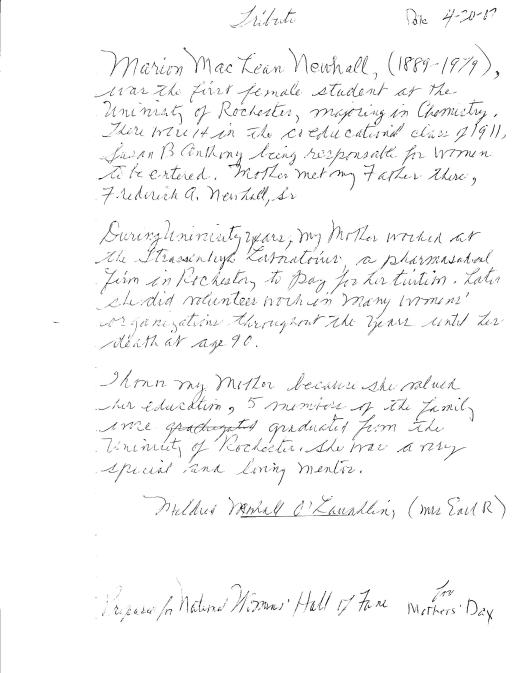 Tribute Date 4-20-07
Marion MacLean Newhall, (1889-1979),
was the first female student at the
University of Rochester, majoring in Chemistry.
There were 14 in the coeducational class of 1911,
Susan B Anthony being responsable for women
to be entered. Mother met my Father there,
Frederick A. Newhall, Sr
During University years, my Mother worked at
the Strassenburgh Laboratories, a pharmasudical
firm in Rochester, to pay for her tuition. Later
she did volunteer work in many womens'
organizations throughout the years until her
death at age 90.
I honor my Mother because she valued
her education, 5 members of the family
were graduated graduated from the
University of Rochester. She was a very
special and loving mentor.
Mildred Newhall O'Laughlin, (Mrs Earl R)
Prepared for National Womens' Hall of Fame for
Mothers' Day